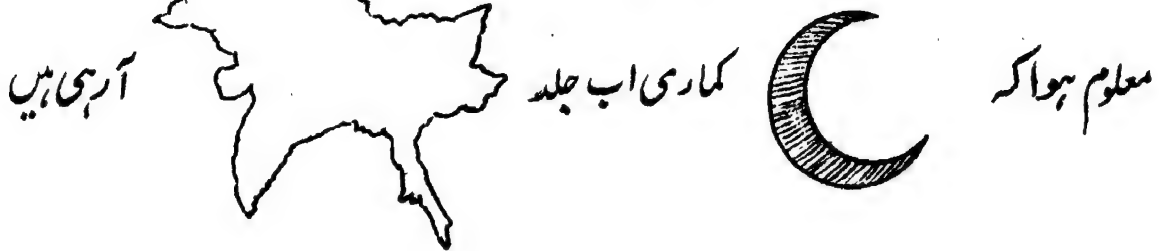 معلوم ہوا کہ کماری اب جلد آرہی ہیں